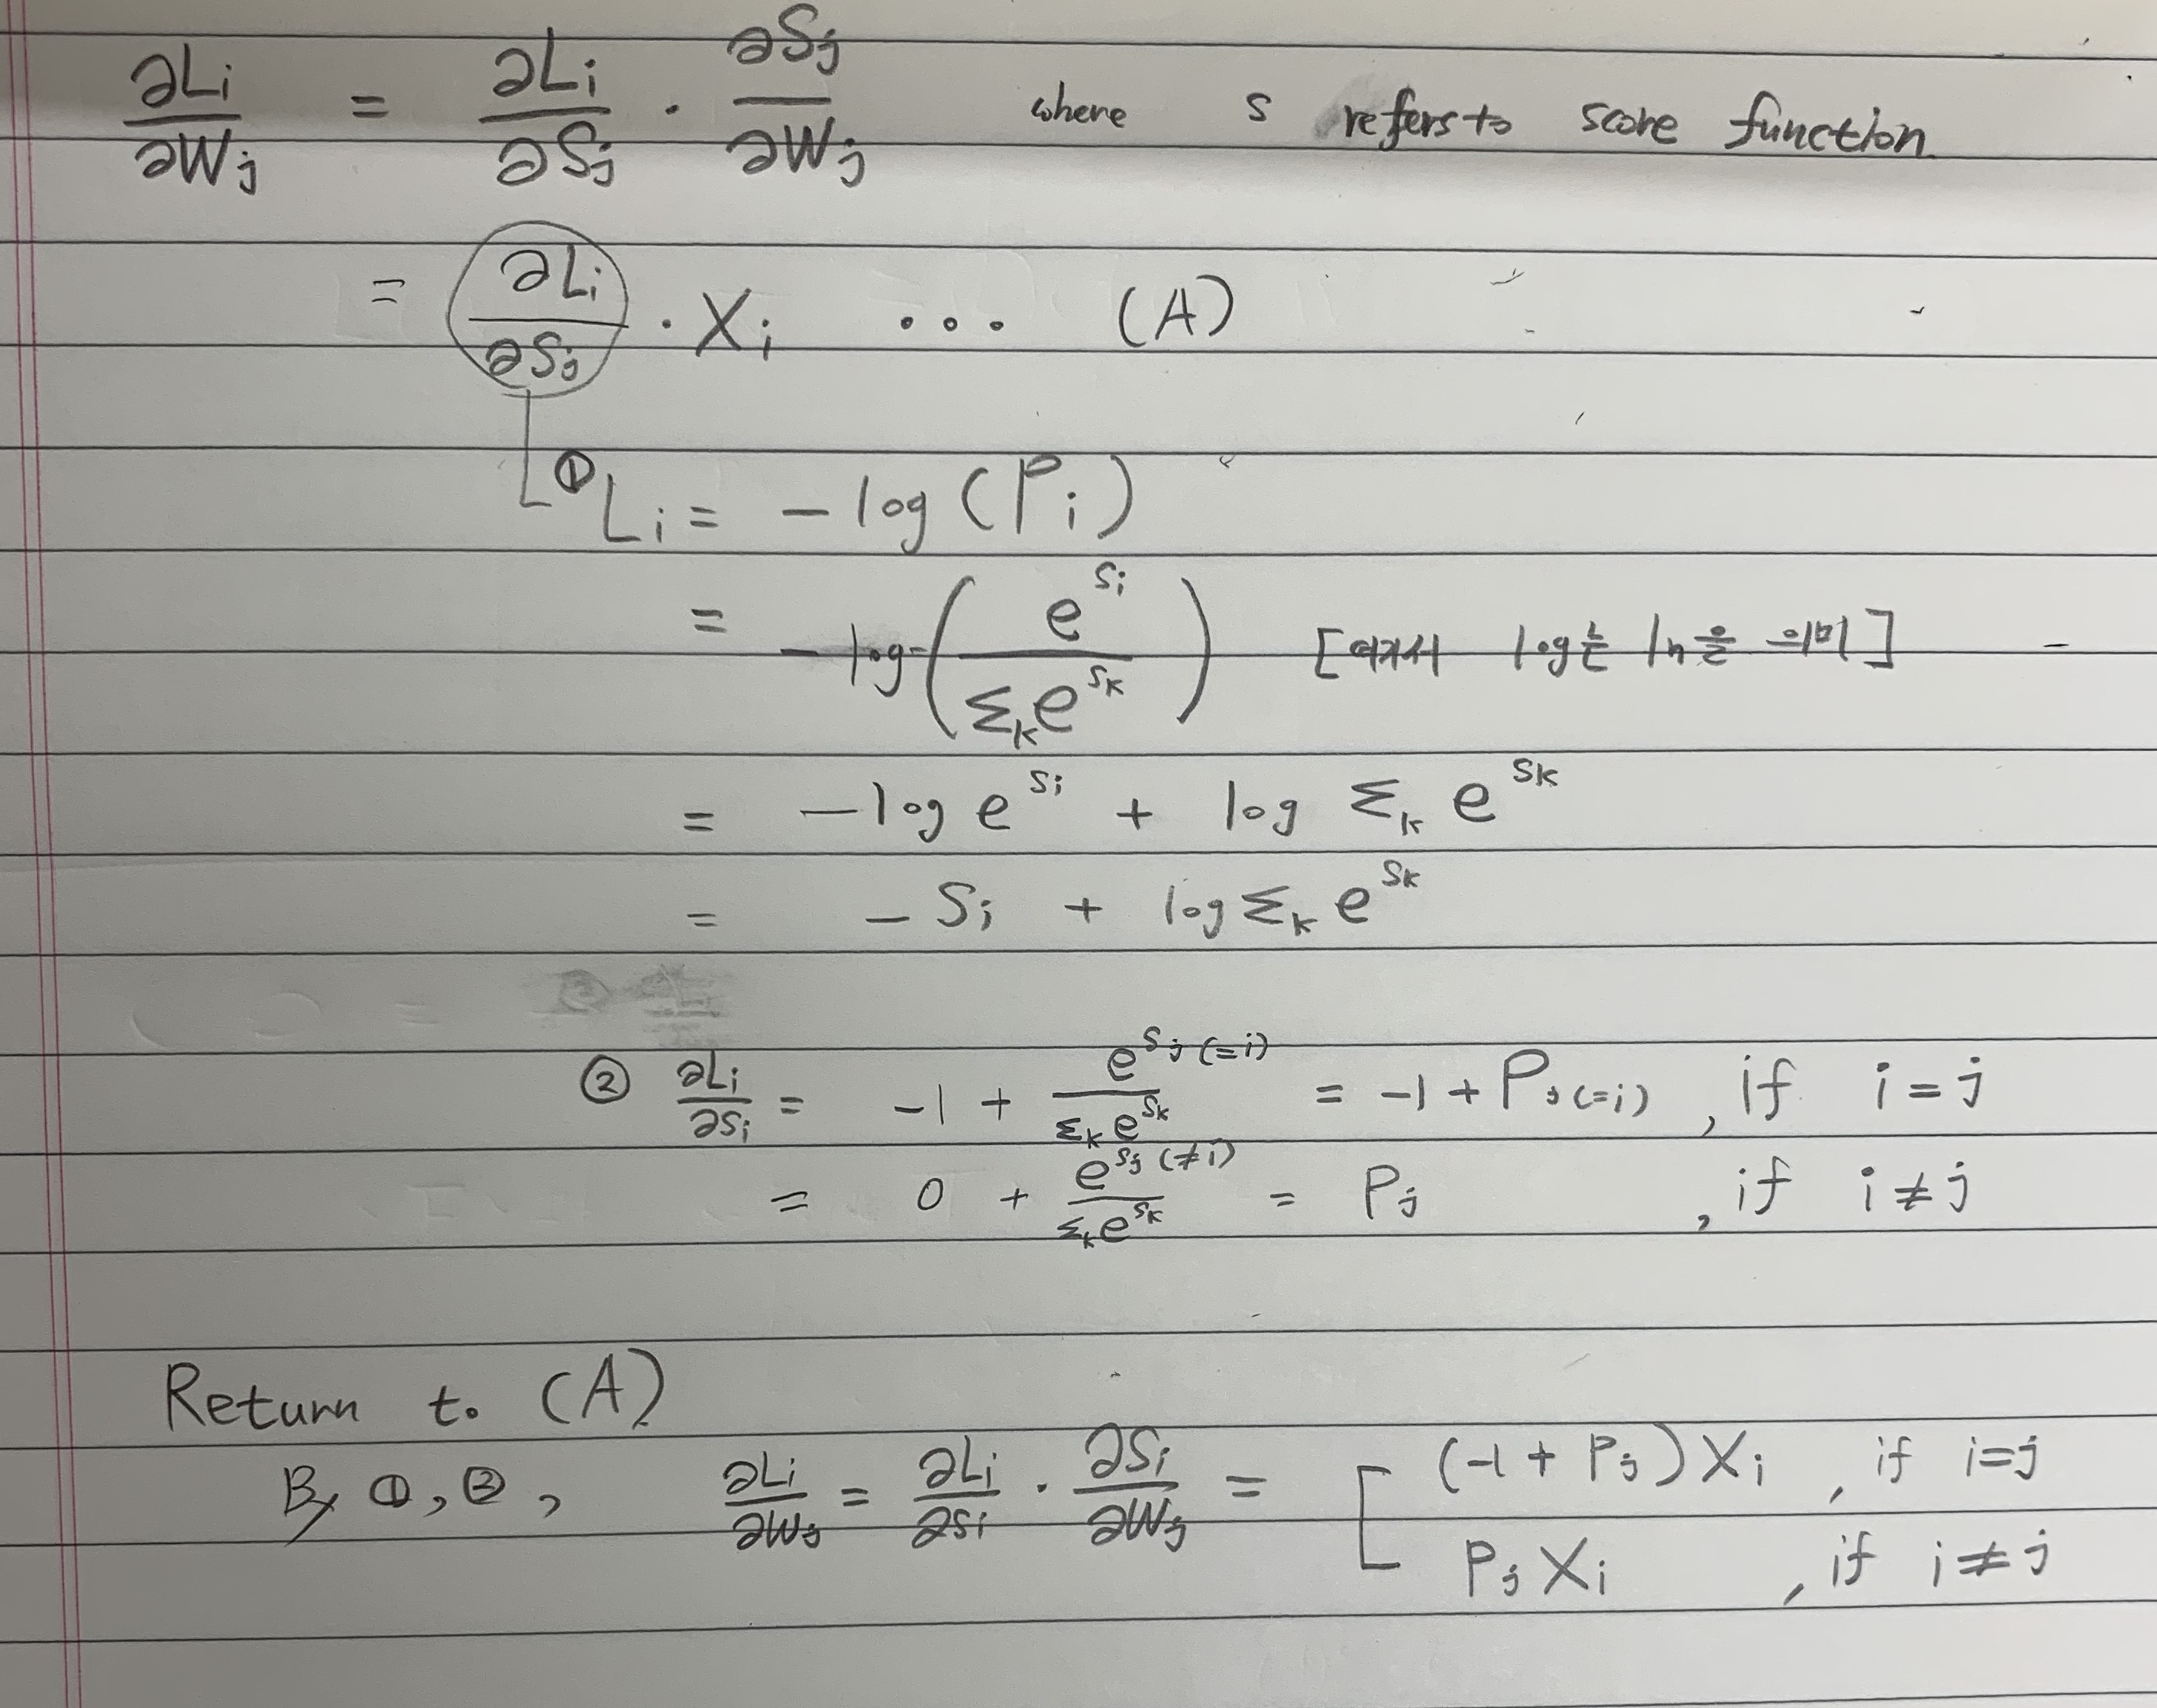 ∂Li/∂Wj = ∂Li/∂Sj · ∂Sj/∂Wj where s refers to score function.
= ∂Li/∂Sj · Xi ... (A)
① Li = -log(Pi)
= -log(e^Si / Σk e^Sk) [여기서 log는 ln을 의미]
= -log e^Si + log Σk e^Sk
= -Si + log Σk e^Sk
② ∂Li/∂Si = -1 + e^Sj(=i) / Σk e^Sk = -1 + Pj(=i) , if i = j
= 0 + e^Sj(≠i) / Σk e^Sk = Pj , if i ≠ j
Return to (A)
By ①, ②, ∂Li/∂Wj = ∂Li/∂Si · ∂Si/∂Wj = [ (-1 + Pj)Xi , if i=j
Pj Xi , if i ≠ j